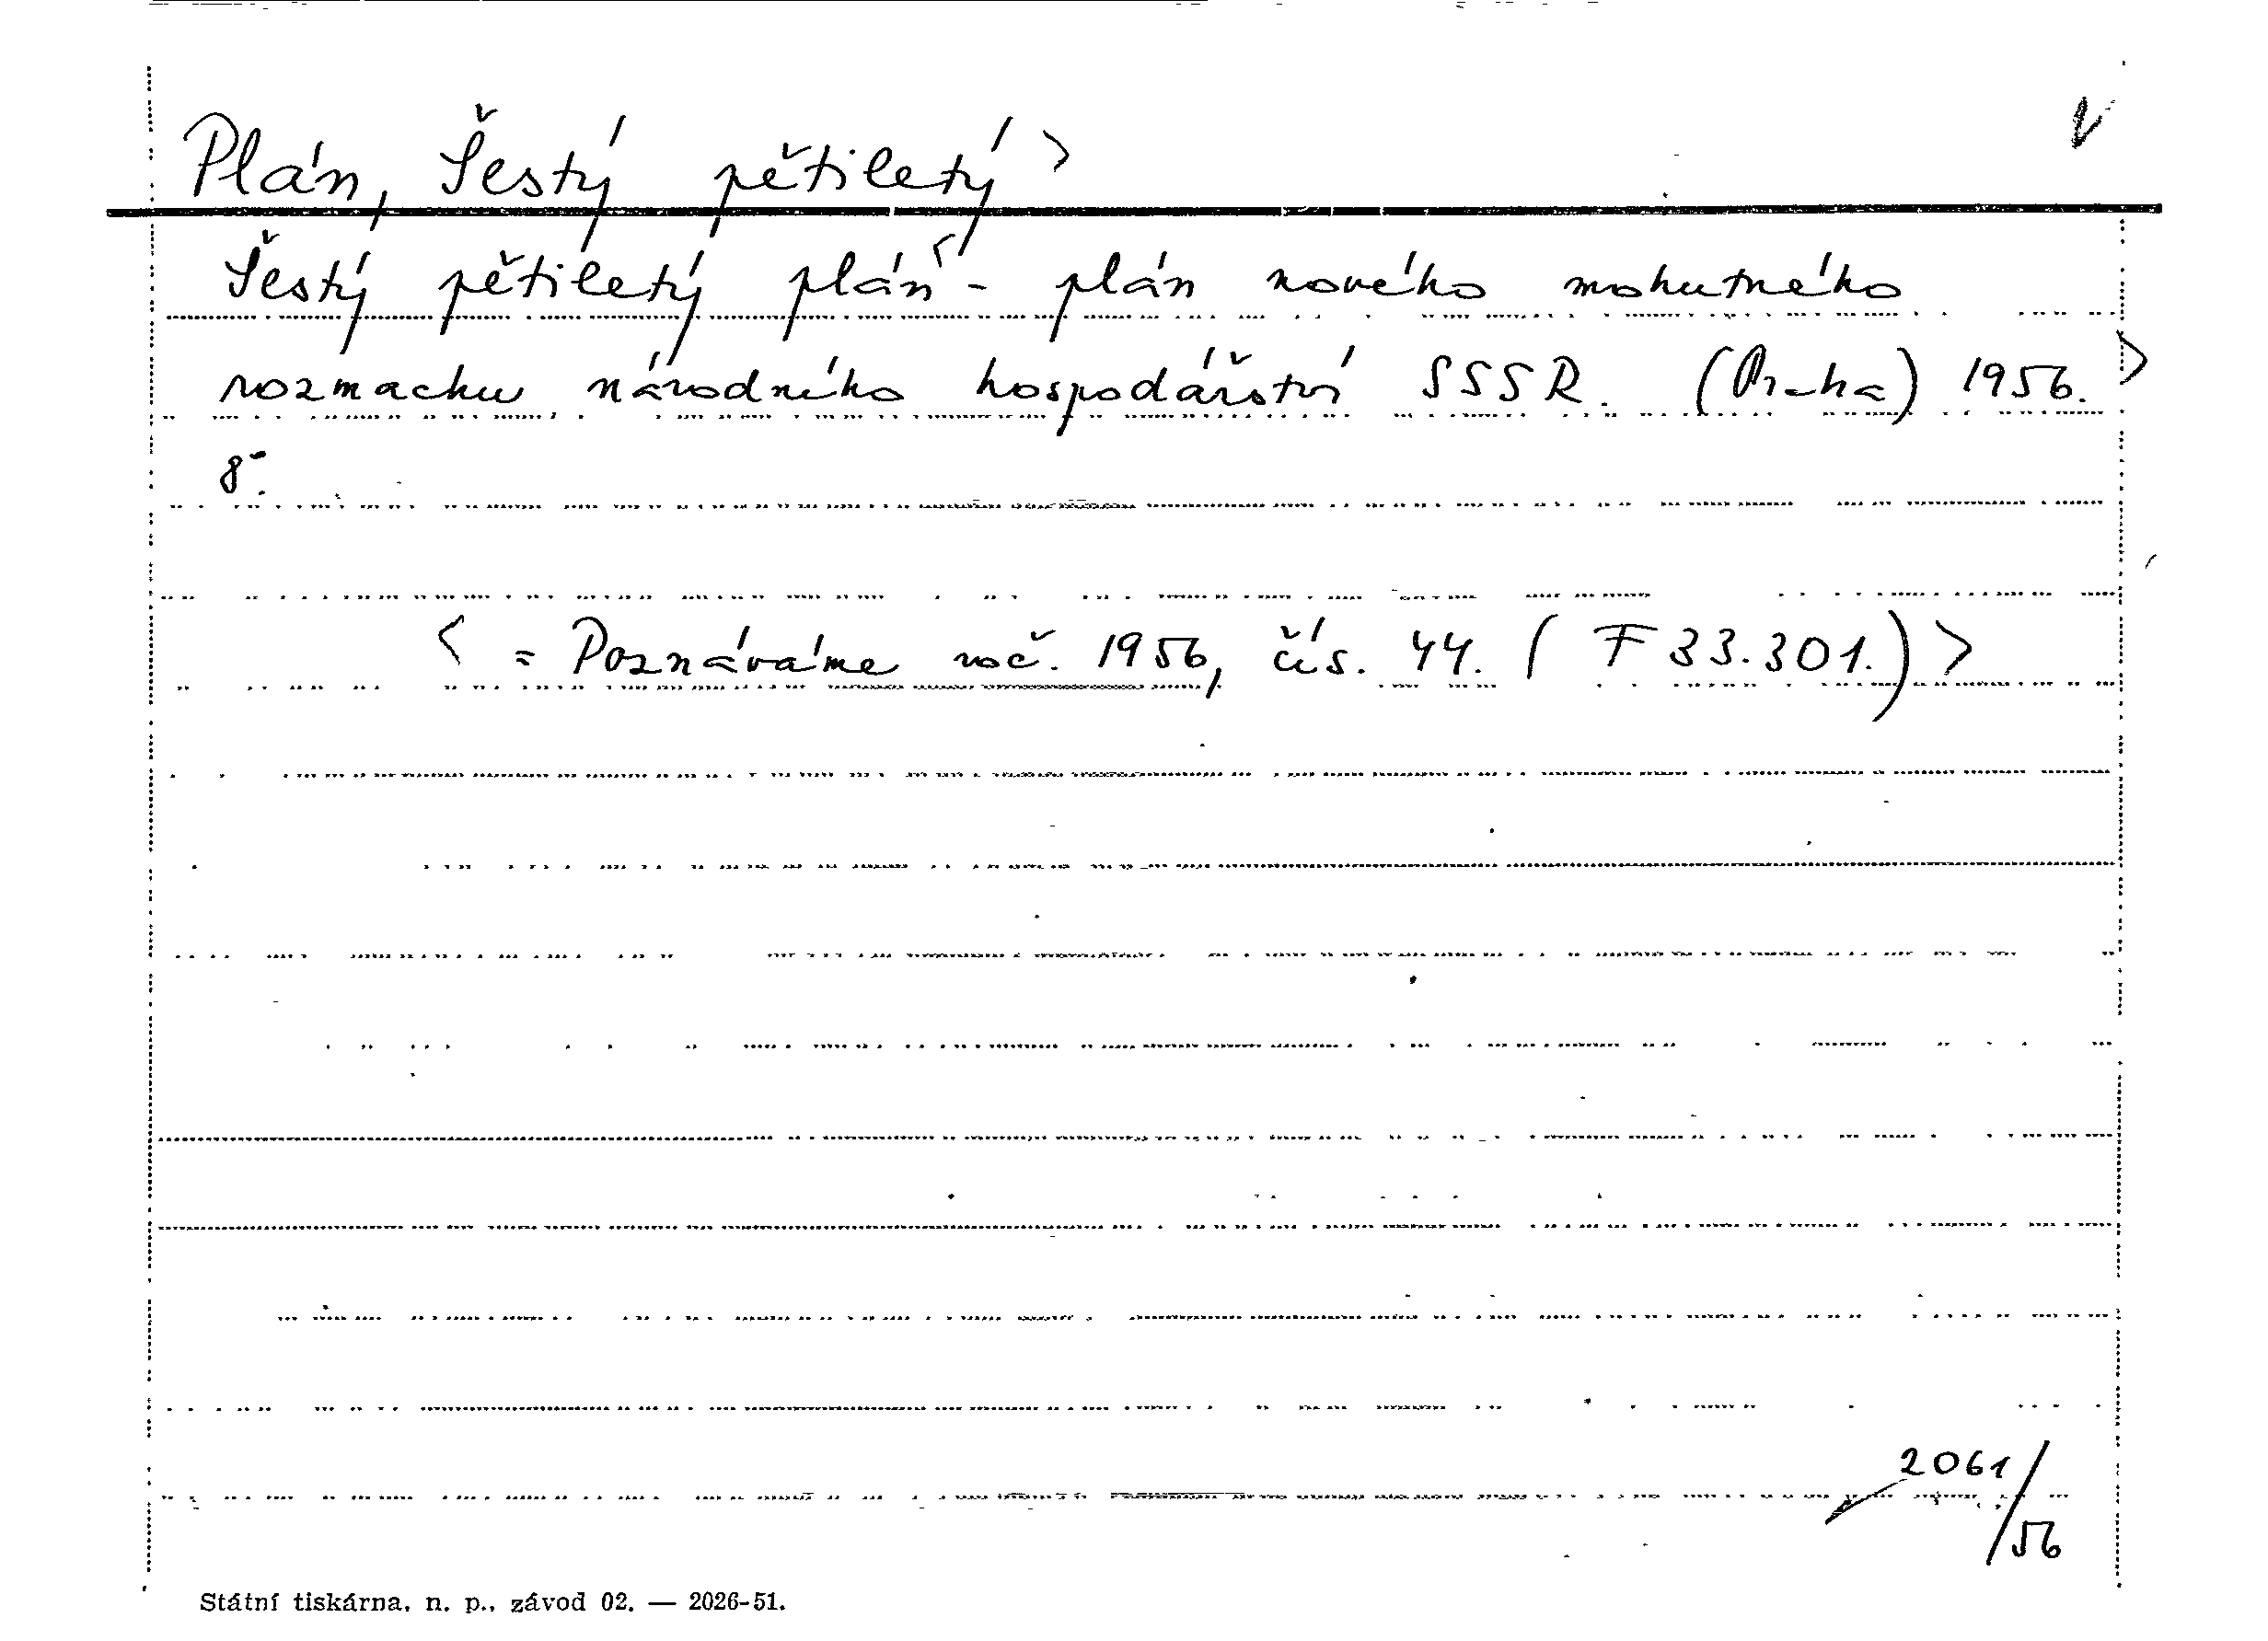 Plán, Šestý pětiletý > V
Šestý pětiletý plán < - plán nového mohutného
rozmachu národního hospodářství SSSR. (Praha) 1956. >
8-.
< = Poznáváme roč. 1956, čís. 44. ( F 33.301.) >
2061/56
Státní tiskárna, n. p., závod 02. — 2026-51.